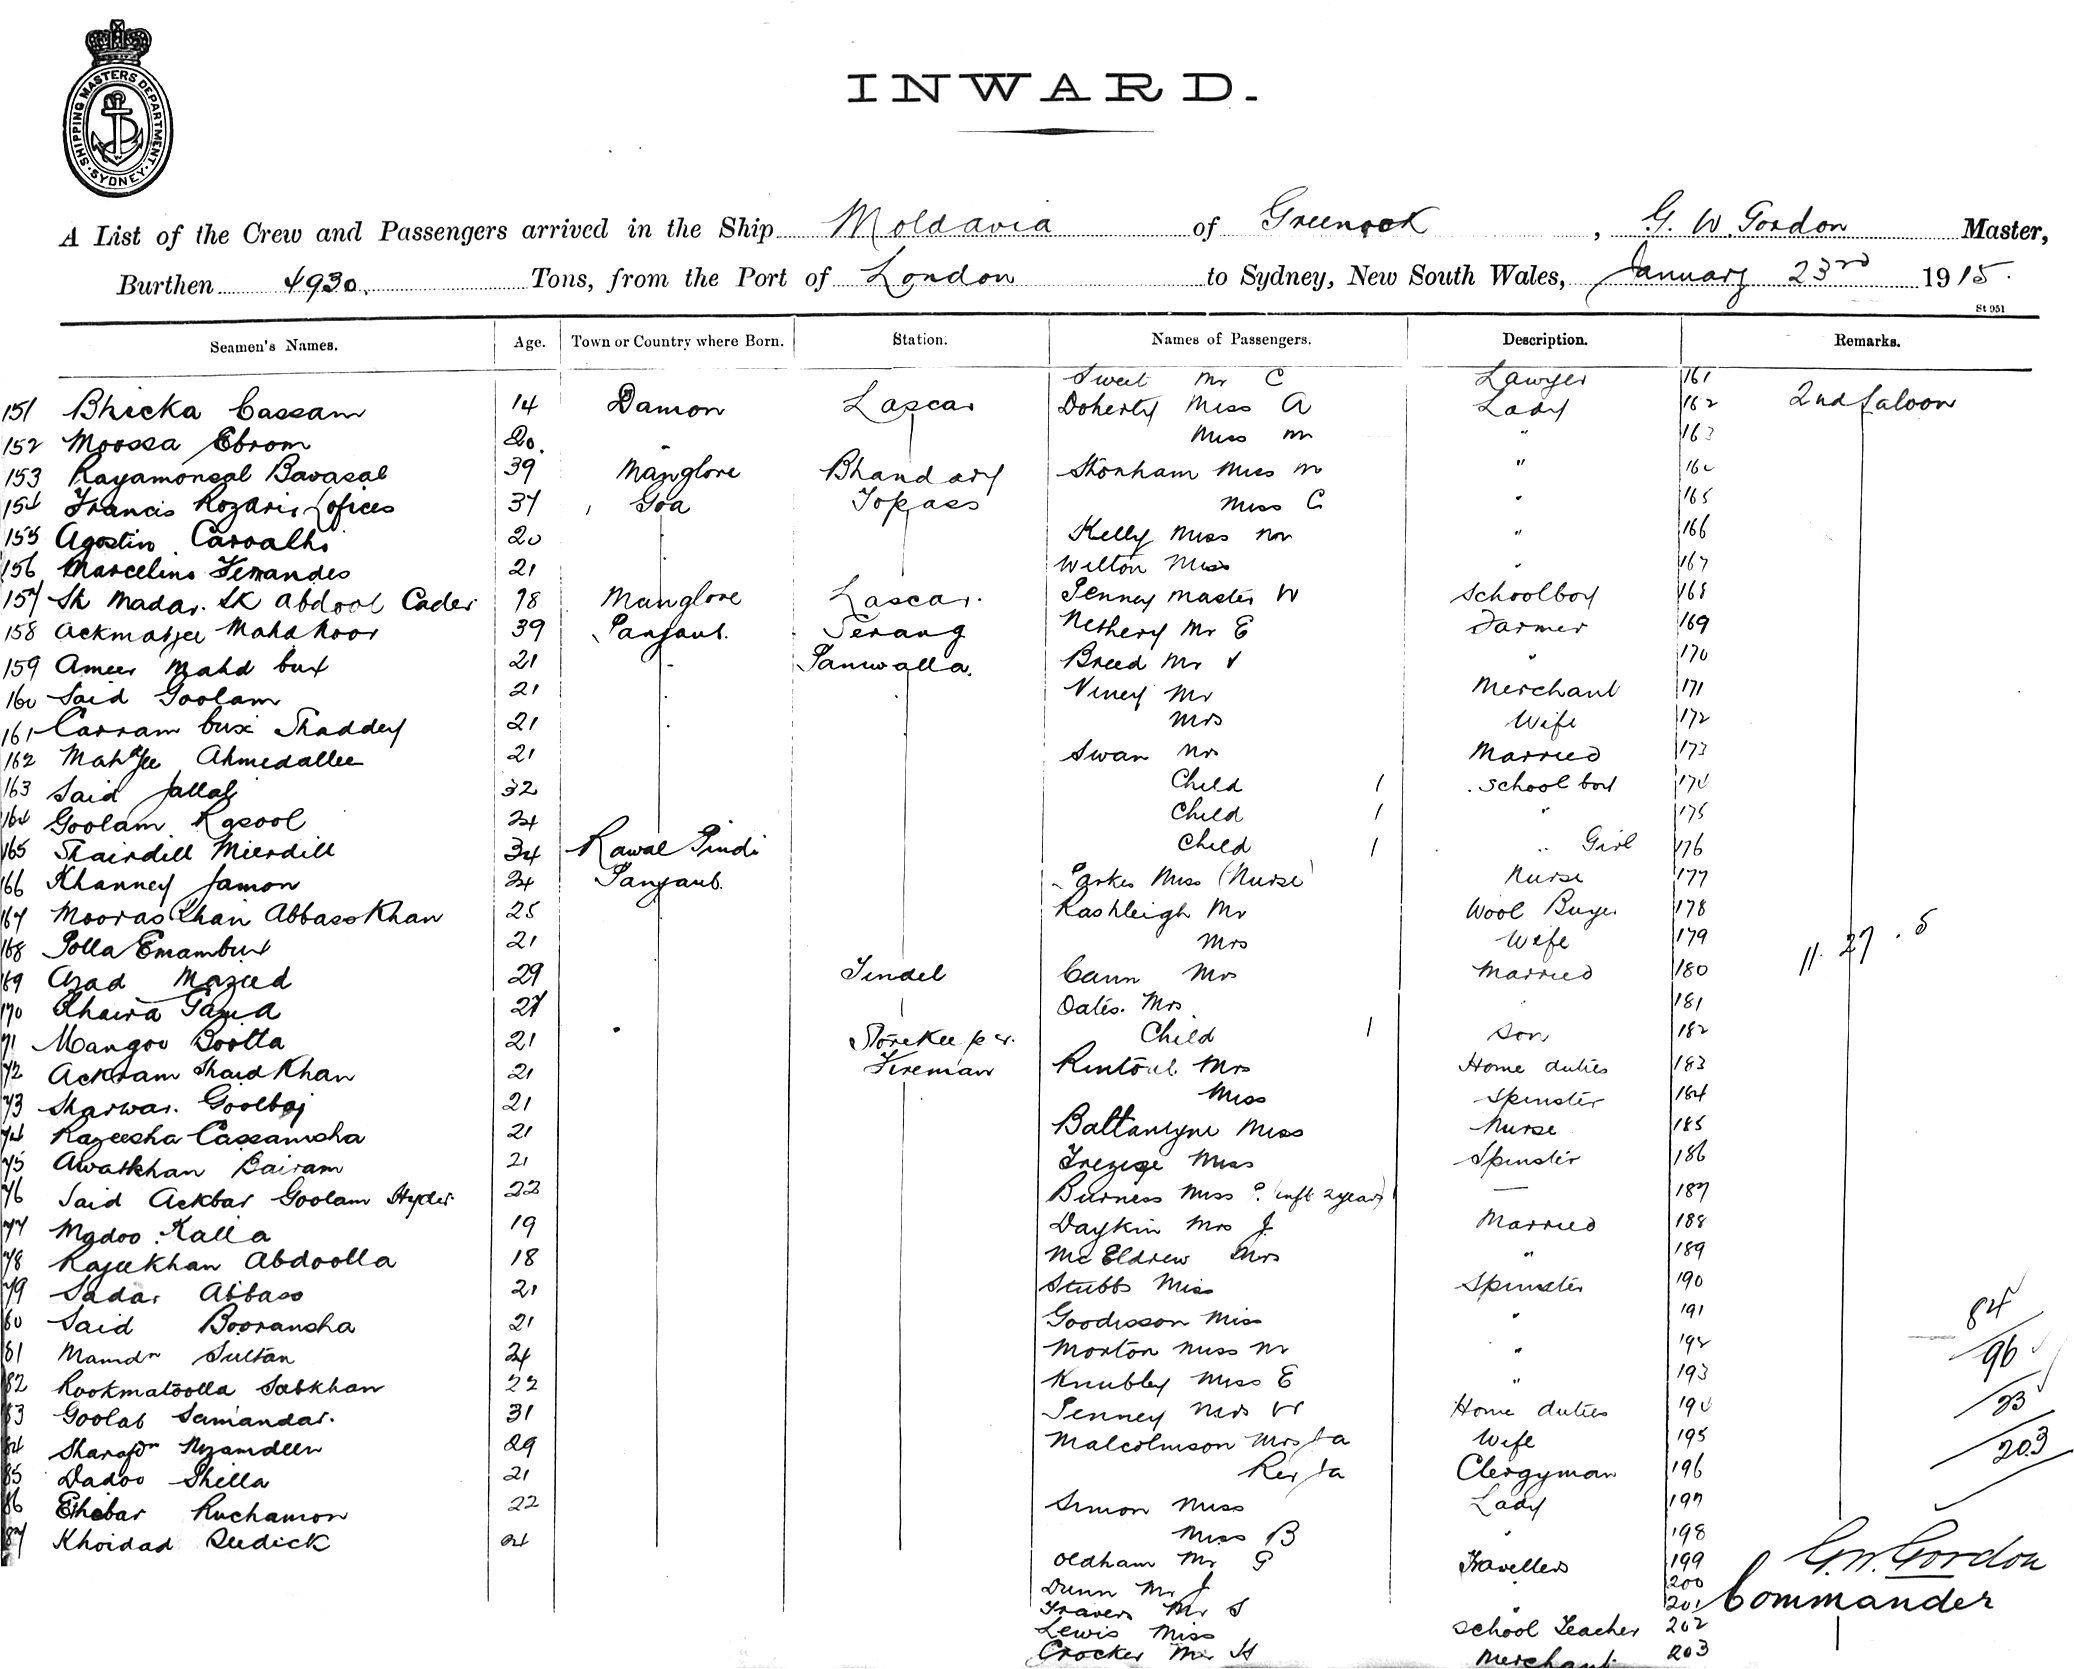 SHIPPING MASTERS DEPARTMENT
SYDNEY
INWARD.
A List of the Crew and Passengers arrived in the Ship Moldavia of Greenock, G. W. Gordon Master,
Burthen 4930. Tons, from the Port of London to Sydney, New South Wales, January 23rd 1915.
St 951
Seamen's Names. Age. Town or Country where Born. Station. Names of Passengers. Description. Remarks.
Sweet Mr C Lawyer 161
151 Bhicka Cassam 14 Damon Lascar Doherty Miss A Lady 162 2nd Saloon
152 Moossa Ebrom 20. " Miss M " 163
153 Rayamonsal Bavasal 39 Manglore Bhandary Stonham Miss M "
154 Francis Rozario Lofices 37 Goa Topass Miss C " 165
155 Agostin Carvalho 20 Kelly Miss " 166
156 Marcelino Fernandes 21 Wilton Miss " 167
157 Sk Madar. Sk Abdool Cader 18 Manglore Lascar. Penney Master W Schoolboy 168
158 Ackmatjee Mahd Noor 39 Panjaub. Serang Nethery Mr E Farmer 169
159 Ameer Mahd bux 21 " Paniwalla. Breed Mr V " 170
160 Said Goolam 21 Viney Mr Merchant 171
161 Carram bux Shaddey 21 Mrs Wife 172
162 Ahmedallee 21 Swan Mrs Married 173
163 Said Jallal 32 Child 1 School boy 174
164 Goolam Rasool 24 Child 1 " 175
165 Shairdill Mierdill 34 Rawal Pindi Child 1 " Girl 176
166 Khanney Jamon 24 Panjaub. Parkes Miss (Nurse) Nurse 177
167 Mooras Khan Abbass Khan 25 Rashleigh Mr Wool Buyer 178
168 Polla Emambux 21 Mrs Wife 179 11. 27 . 5
169 Azad Mazeed 29 Tindel Cann Mrs Married 180
170 Khaira Gama 27 Oates. Mrs " 181
71 Mangoo Bootta 21 " Storekeeper. Child 1 Son 182
72 Ackram Shaid Khan 21 Fireman Rintoul Mrs Home duties 183
73 Sharwar. Goolbaj 21 Miss Spinster 184
74 Razeesha Cassamsha 21 Ballantyne Miss Nurse 185
75 Awalkhan Bairam 21 Trezise Miss Spinster 186
76 Said Ackbar Goolam Hyder 22 Burness Miss P. (inft 2 years) — 187
77 Madoo Kalla 19 Daykin Mrs J. Married 188
78 Rajeekhan Abdoolla 18 McEldrew Mrs " 189
79 Sadar Abbass 21 Stubbs Miss Spinster 190
80 Said Booransha 21 Goodisson Miss " 191 84
81 Mamdn Sultan 24 Morton Miss M " 192 96
82 Rookmatoolla Sabkhan 22 Knubley Miss E " 193
83 Goolab Samandar. 31 Penney Mrs W Home duties 194 23
84 Sharafdn Nyamdeen 29 Malcolmson Mrs Ja Wife 195 203
85 Dadoo Shella 21 Rev Ja Clergyman 196
86 Ethebar Ruchamon 22 Simon Miss Lady 197
87 Khoidad Deedick 24 Miss B " 198
Oldham Mr G Travellers 199 G. W. Gordon
Dunn Mr J " 200 Commander
Travers Mr S " 201
Lewis Miss School Teacher 202
Crocker Mr H Merchant. 203